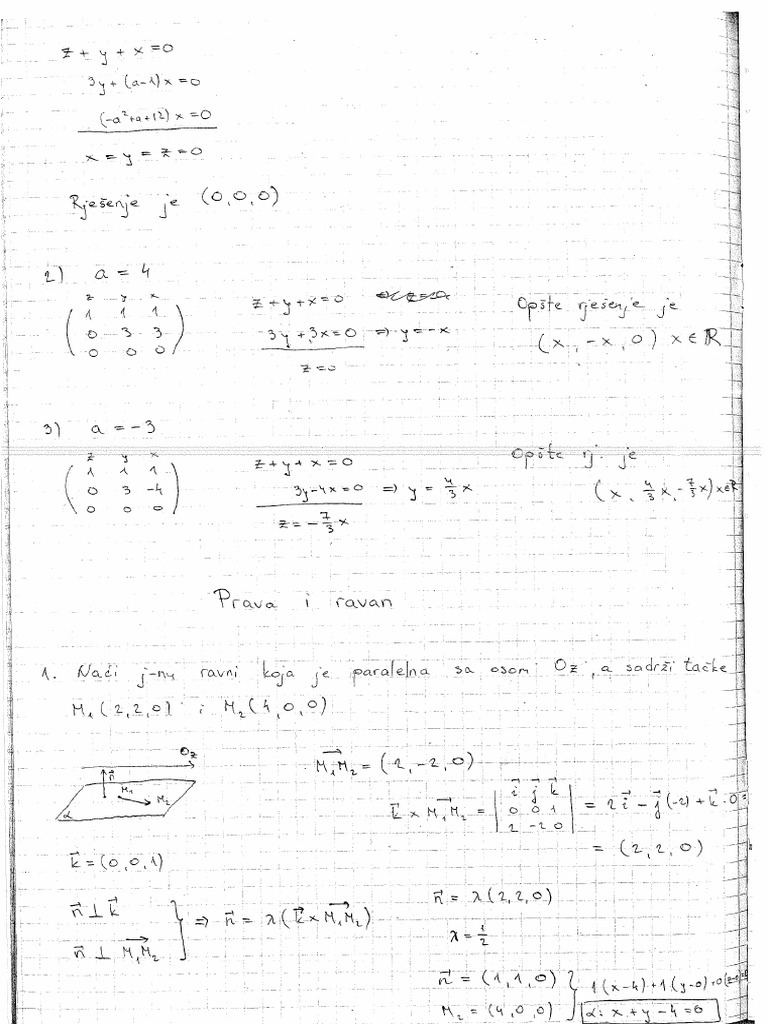 z + y + x = 0
3y + (a-1)x = 0
(-a²+a+12) x = 0
x = y = z = 0
Rješenje je (0,0,0)
2) a = 4
z y x
1 1 1
0 3 3
0 0 0
z + y + x = 0
3y + 3x = 0 ⇒ y = -x
z = 0
Opšte rješenje je
(x, -x, 0) x ∈ ℝ
3) a = -3
z y x
1 1 1
0 3 -4
0 0 0
z + y + x = 0
3y - 4x = 0 ⇒ y = 4/3 x
z = -7/3 x
Opšte rj. je
(x, 4/3 x, -7/3 x) x∈ℝ
Prava i ravan
1. Naći j-nu ravni koja je paralelna sa osom Oz, a sadrži tačke
M₁(2,2,0) i M₂(4,0,0)
Oz
n⃗
M₁
M₂
α
M₁M₂⃗ = (2, -2, 0)
k⃗ × M₁M₂⃗ = | i⃗ j⃗ k⃗ | = 2i⃗ - j⃗(-2) + k⃗·0 =
0 0 1
2 -2 0
= (2, 2, 0)
k⃗ = (0,0,1)
n⃗ ⊥ k⃗
n⃗ ⊥ M₁M₂⃗
} ⇒ n⃗ = λ(k⃗ × M₁M₂⃗)
n⃗ = λ(2,2,0)
λ = 1/2
n⃗ = (1,1,0)
M₂ = (4,0,0)
} 1(x-4)+1(y-0)+0(z-0)=0
α: x + y - 4 = 0